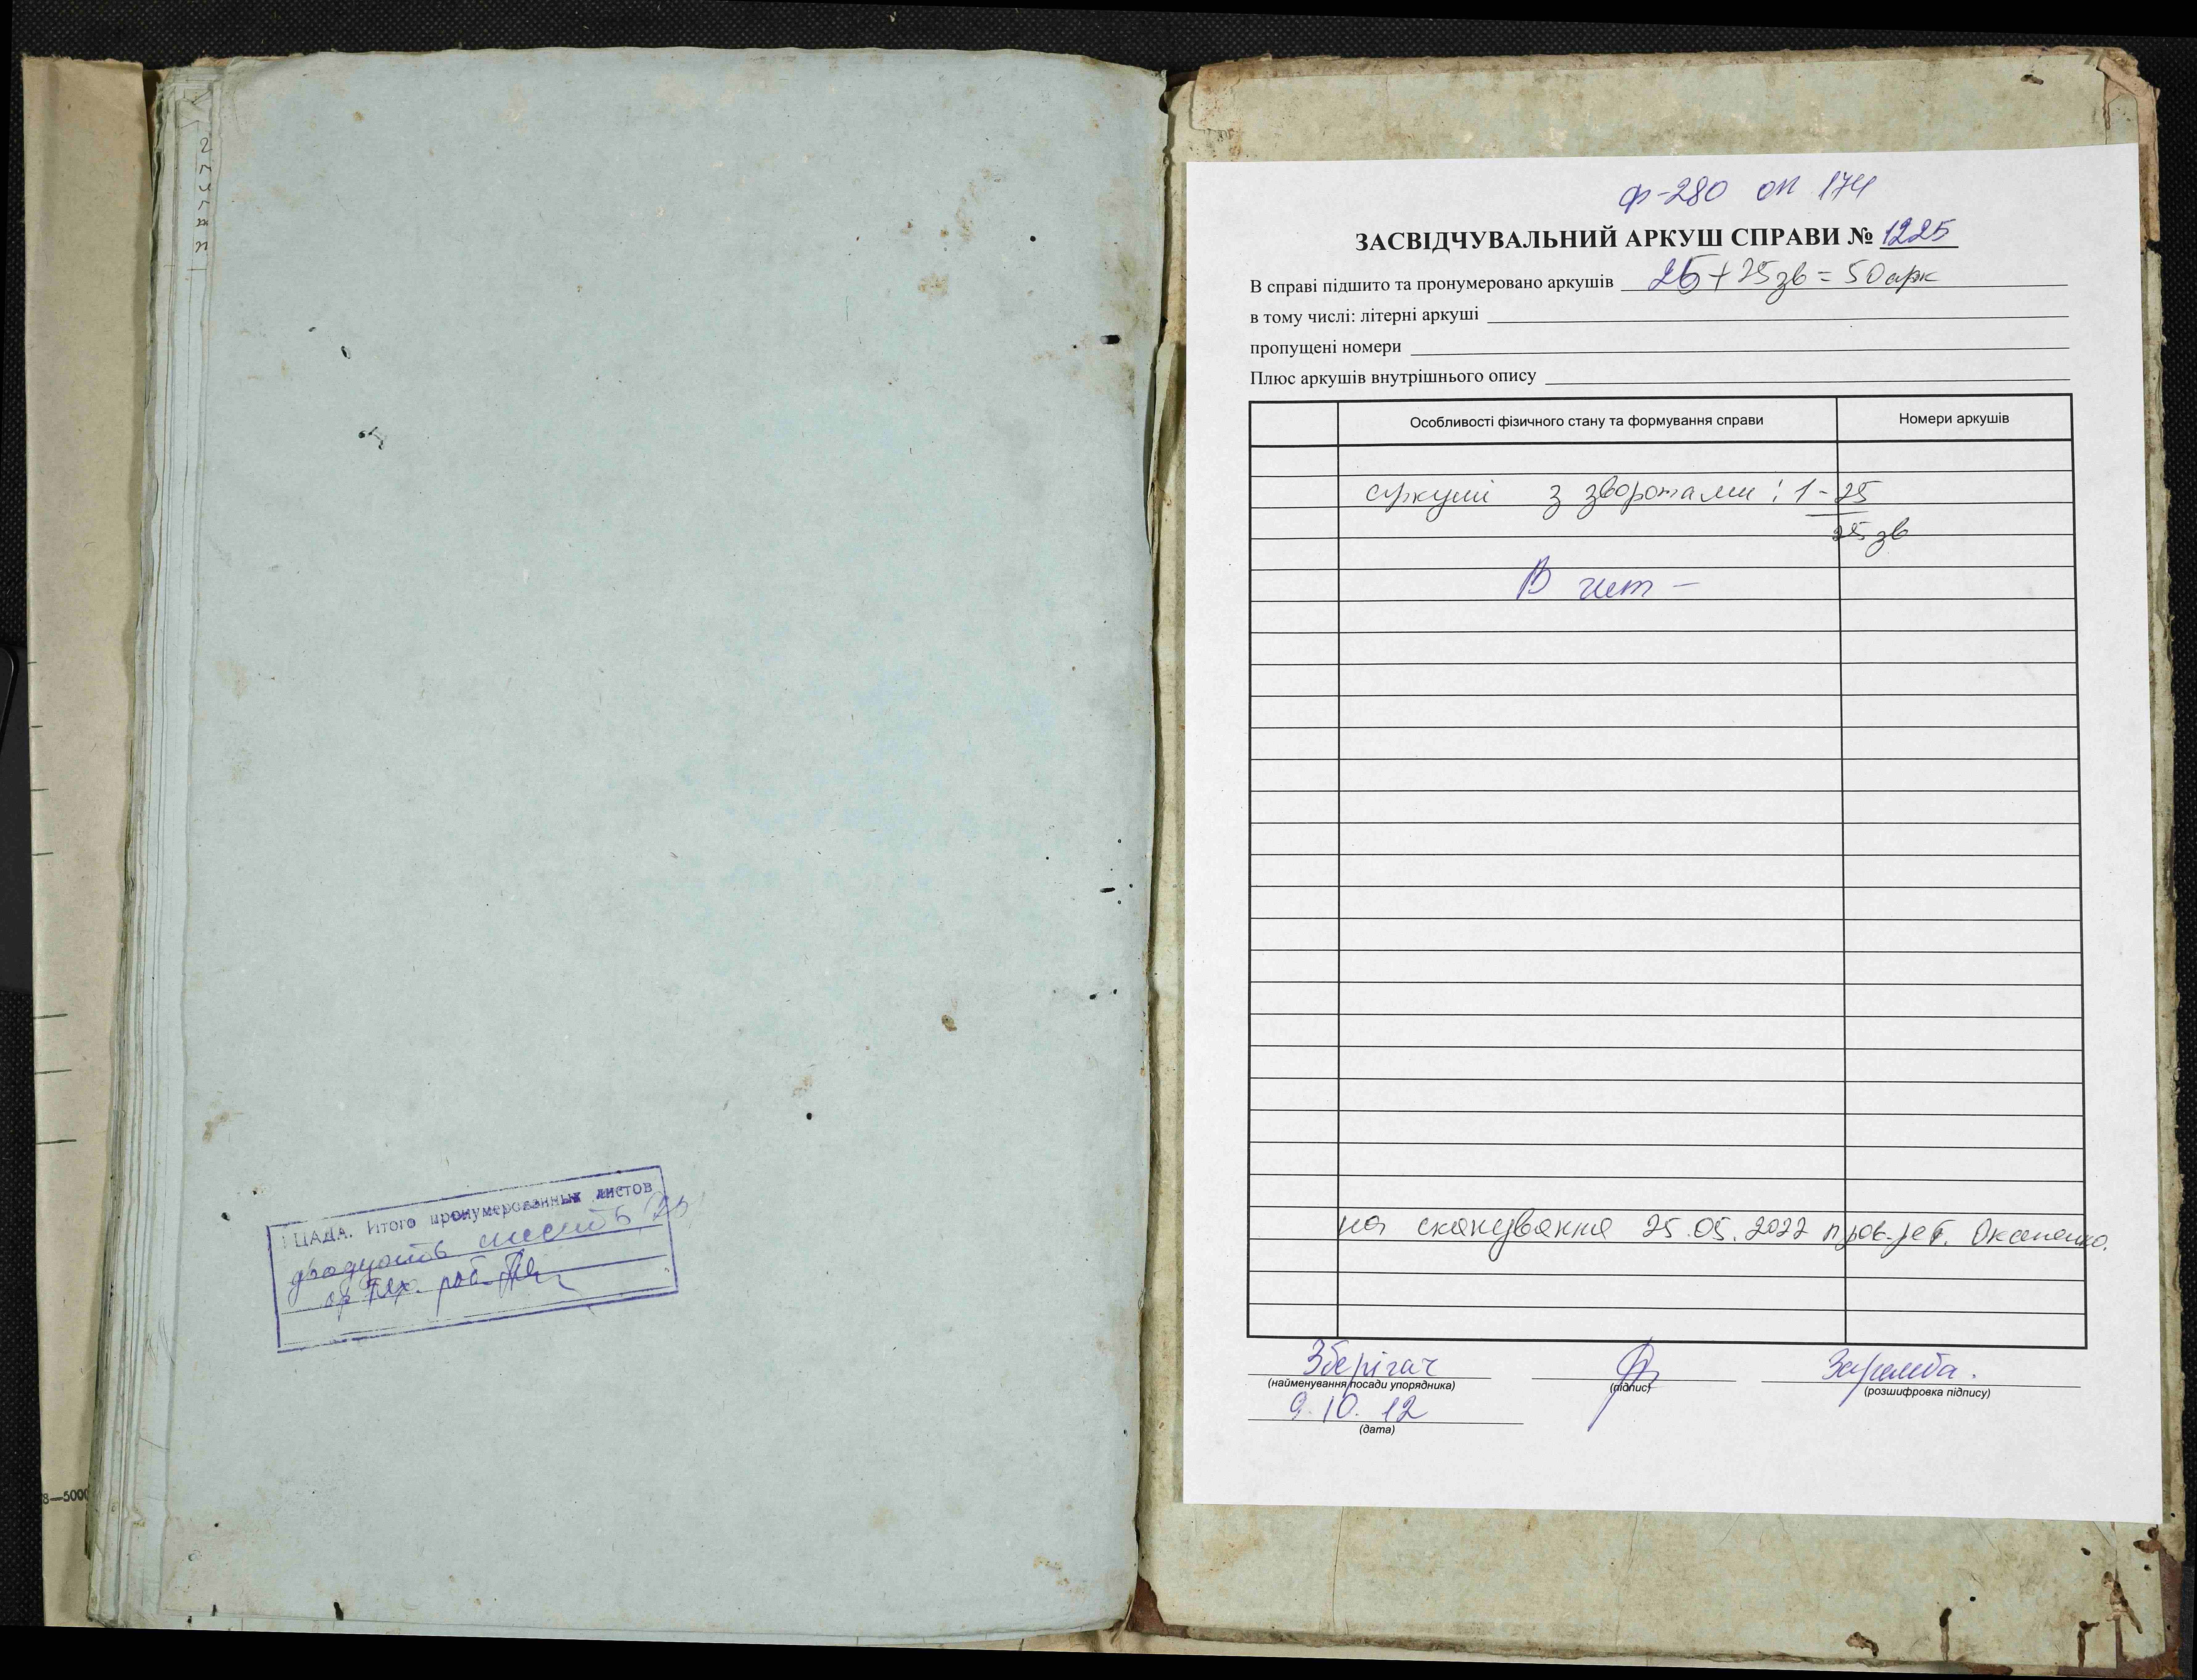 ЦАДА. Итого пронумерованных листов
двадцать шесть (26)
8—5000
ф-280 оп 174
ЗАСВІДЧУВАЛЬНИЙ АРКУШ СПРАВИ № 1225
В справі підшито та пронумеровано аркушів 25+25зв = 50арк
в тому числі: літерні аркуші
пропущені номери
Плюс аркушів внутрішнього опису
Особливості фізичного стану та формування справи Номери аркушів
аркуші з зворотами: 1-25
25 зв
на сканування 25.05.2022
Зберігач Заремба.
(найменування посади упорядника) (підпис) (розшифровка підпису)
9.10.12
(дата)